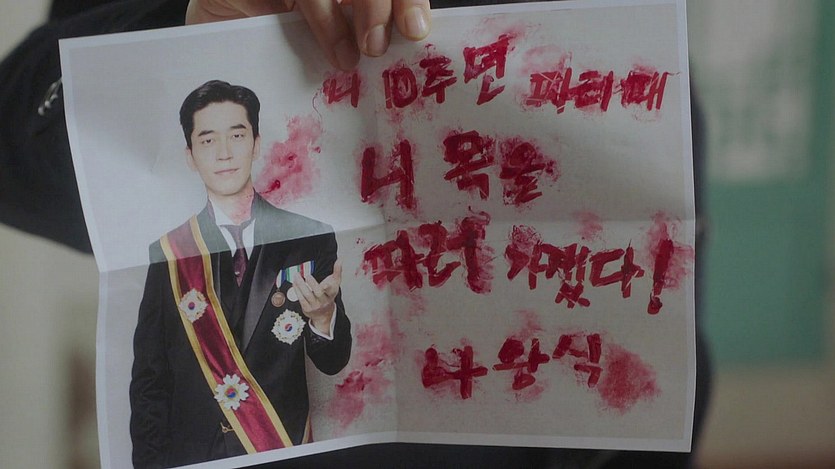 니 10주년 파티때
니 목을
따러 가겠다!
나왕식